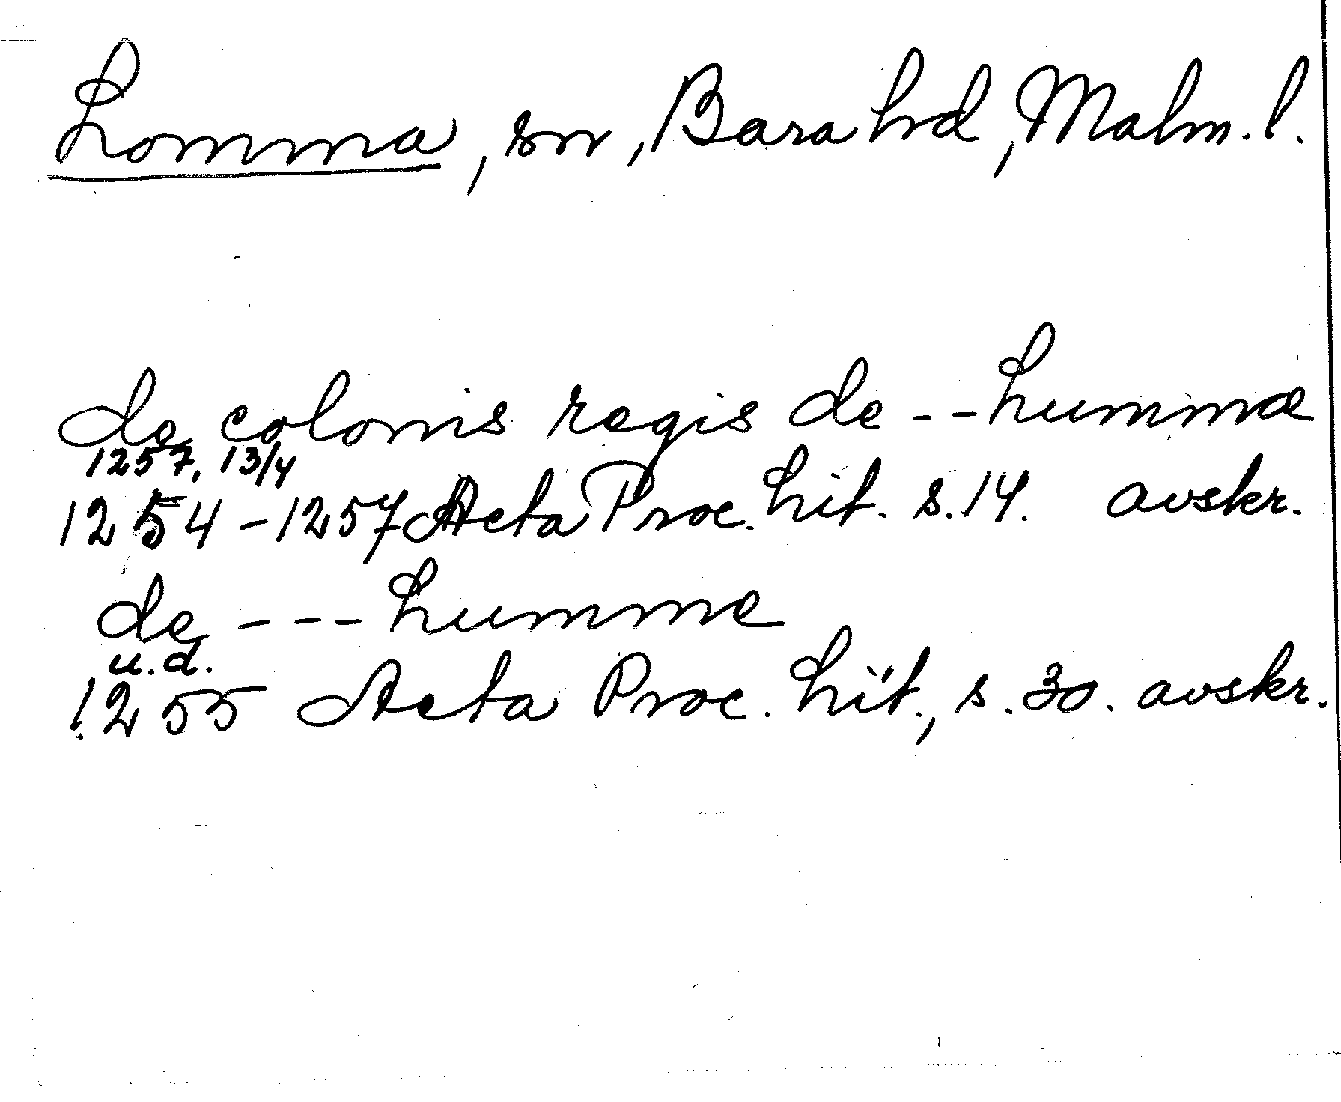 Lomma, sn, Bara hd, Malm. l.
de colonis regis de -- Lummæ
1257, 13/4
1254-1257 Acta Proc. Lit. s. 14. avskr.
de --- Lumme
u.d.
1255 Acta Proc. Lit., s. 30. avskr.